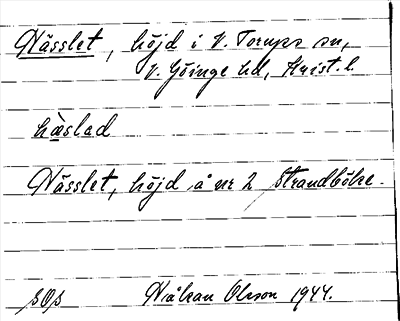 Hässlet, höjd i V. Torups sn,
V. Göinge hd, Krist. l.
hàslad
Hässlet, höjd å nr 2 Strandböke.
SOs Håkan Olsson 1944.